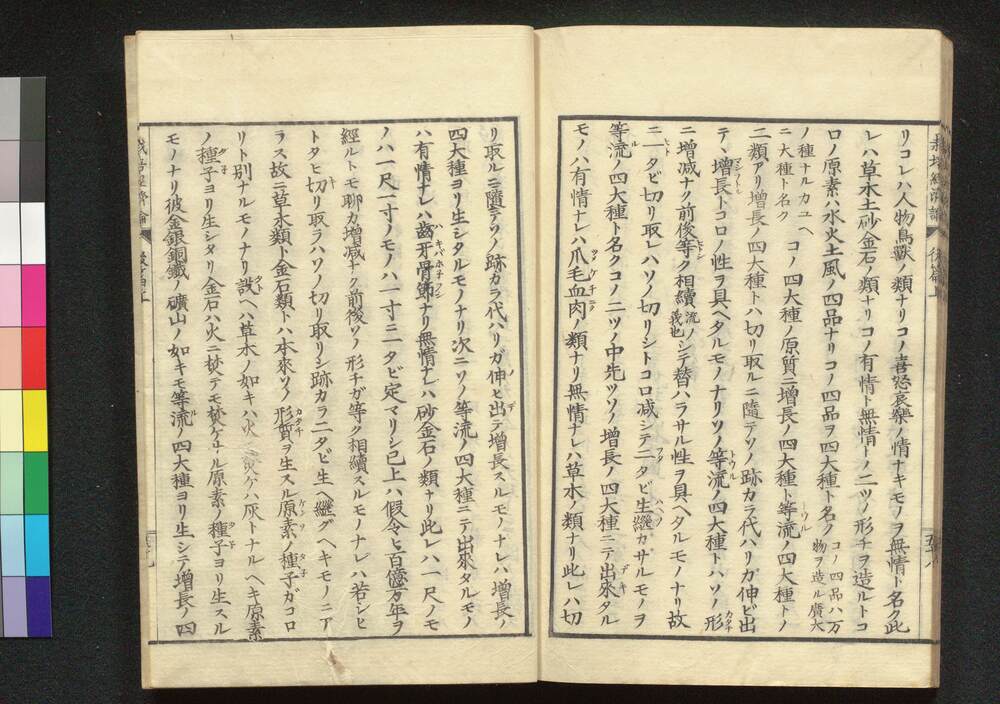 リコレハ人物鳥獸ノ類ナリコノ喜怒哀樂ノ情ナキモノヲ無情ト名ク此
レハ草木土砂金石ノ類ナリコノ有情ト無情トノ二ツノ形チヲ造ルトコ
ロノ原素ハ水火土風ノ四品ナリコノ四品ヲ四大種ト名ク コノ四品ハ万物ヲ造ル廣大
ノ種ナルカユヘニ大種ト名ク コノ四大種ノ原質ニ增長ノ四大種ト等流ノ四大種トノ
二類アリ增長ノ四大種トハ切リ取ルニ隨テソノ跡カラ代ハリガ伸ビ出
テヽ增長トコロノ性ヲ具ヘタルモノナリソノ等流ノ四大種トハソノ形
ニ增减ナク前後等ク相續 流ノ義也 シテ替ハラサル性ヲ具ヘタルモノナリ故
ニ一タビ切リ取レハソノ切リシトコロ减シテ二タビ生繼カサルモノヲ
等流ノ四大種ト名クコノ二ツノ中先ツソノ增長ノ四大種ニテ出來タル
モノハ有情ナレハ爪毛血肉ノ類ナリ無情ナレハ草木ノ類ナリ此レハ切
リ取ルニ隨テソノ跡カラ代ハリガ伸ヒ出テ增長スルモノナレハ增長ノ
四大種ヨリ生シタルモノナリ次ニソノ等流ノ四大種ニテ出來タルモノ
ハ有情ナレハ齒牙骨節ナリ無情ナレハ砂金石ノ類ナリ此レハ一尺ノモ
ノハ一尺一寸ノモノハ一寸ニ一タビ定マリシ已上ハ假令ヒ百億万年ヲ
經ルトモ聊カ增减ナク前後ソノ形チガ等ク相續スルモノナレハ若シヒ
トタヒ切リ取ラハソノ切リ取リシ跡カラ二タビ生ヘ繼グヘキモノニア
ラス故ニ草木類ト金石類トハ本來ソノ形質ヲ生スル原素ノ種子ガコロ
リト別ナルモノナリ設ヘハ草木ノ如キハ火ニ焚ケハ灰トナルヘキ原素
ノ種子ヨリ生シタリ金石ハ火ニ焚テモ焚ケサル原素ノ種子ヨリ生スル
モノナリ彼金銀銅鐵ノ礦山ノ如キモ等流ノ四大種ヨリ生シテ增長ノ四